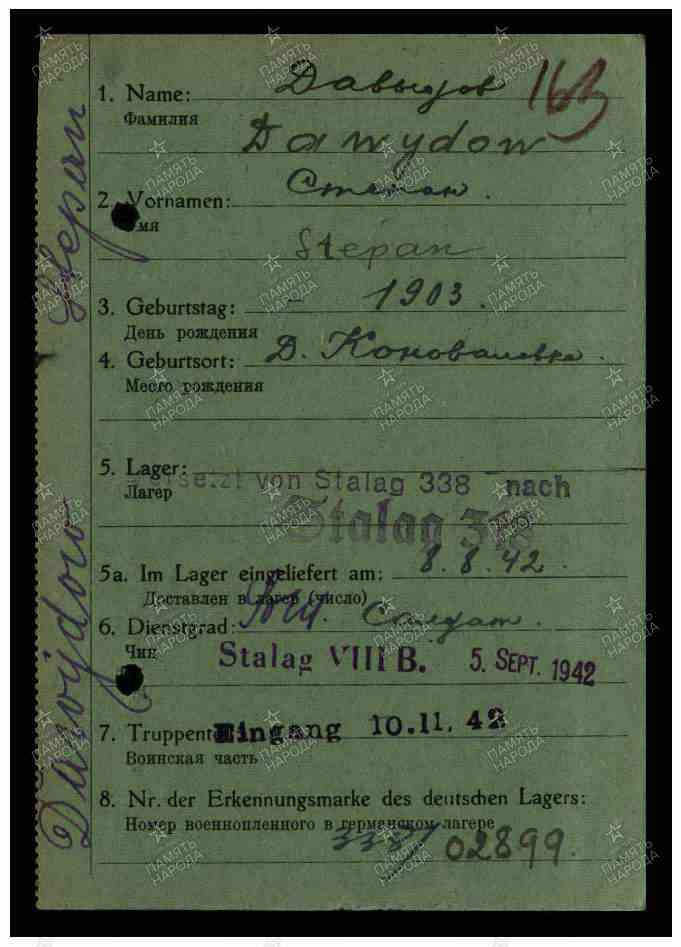 1. Name: Давыдов
Фамилия
Dawydow
2. Vornamen: Степан.
Имя
Stepan
3. Geburtstag: – 1903.
День рождения
4. Geburtsort: Д. Коноваловка.
Место рождения
5. Lager:
Versetzt von Stalag 338 nach
Лагер
Stalag 318
5a. Im Lager eingeliefert am: 8.8.42.
Доставлен в лагер (число)
6. Dienstgrad: Солдат.
Чин
Stalag VIII B. 5. SEPT. 1942
7. Eingang 10.11.42
Воинская часть
8. Nr. der Erkennungsmarke des deutschen Lagers:
Номер военнопленного в германском лагере
02899.
Dawydow Stepan
ПАМЯТЬ НАРОДА